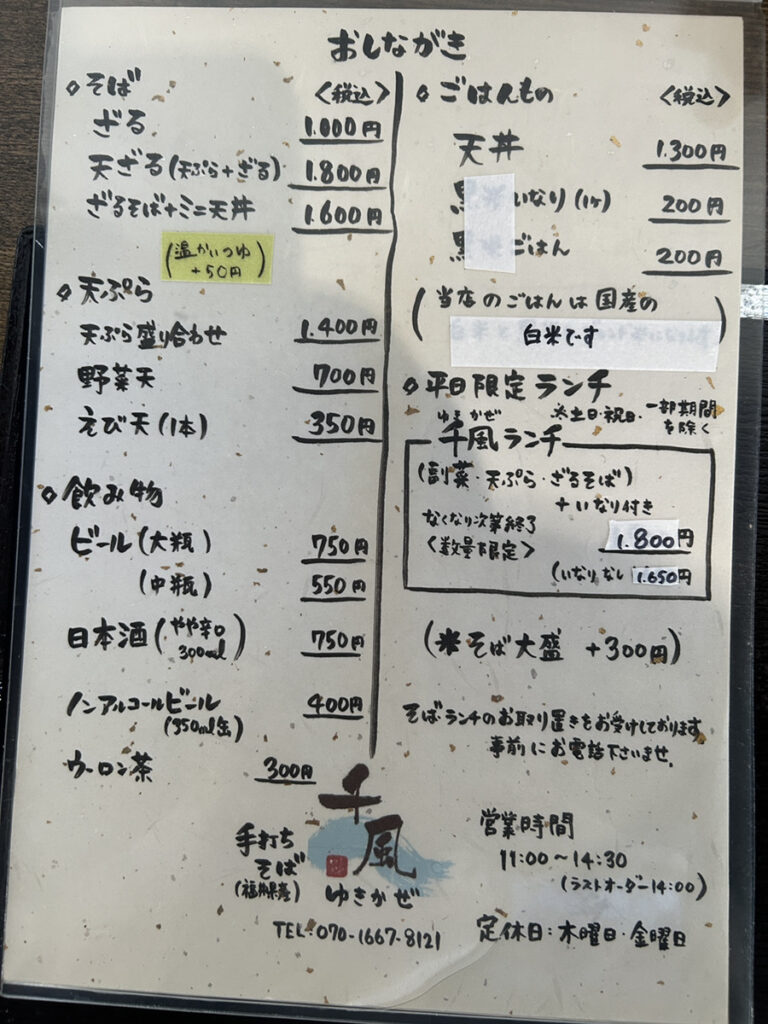 おしながき
◇そば 〈税込〉
ざる 1.000円
天ざる(天ぷら+ざる) 1.800円
ざるそば+ミニ天丼 1.600円
(温かいつゆ
+50円)
◇天ぷら
天ぷら盛り合わせ 1.400円
野菜天 700円
えび天(1本) 350円
◇飲み物
ビール(大瓶) 750円
(中瓶) 550円
日本酒(やや辛口 300ml) 750円
ノンアルコールビール 400円
(350ml缶)
ウーロン茶 300円
◇ごはんもの 〈税込〉
天丼 1.300円
いなり(1ヶ) 200円
ごはん 200円
(当店のごはんは国産の
白米です)
◇平日限定ランチ
※土日・祝日・一部期間
を除く
ゆきかぜ
千風ランチ
(副菜・天ぷら・ざるそば)
+いなり付き
なくなり次第終了
〈数量限定〉 1.800円
(いなりなし 1.650円
(※そば大盛 +300円)
そば・ランチのお取り置きをお受けしております
事前にお電話下さいませ。
手打ち
そば
(福井県産)
千風
ゆきかぜ
TEL:070-1667-8121
営業時間
11:00〜14:30
(ラストオーダー14:00)
定休日:木曜日・金曜日